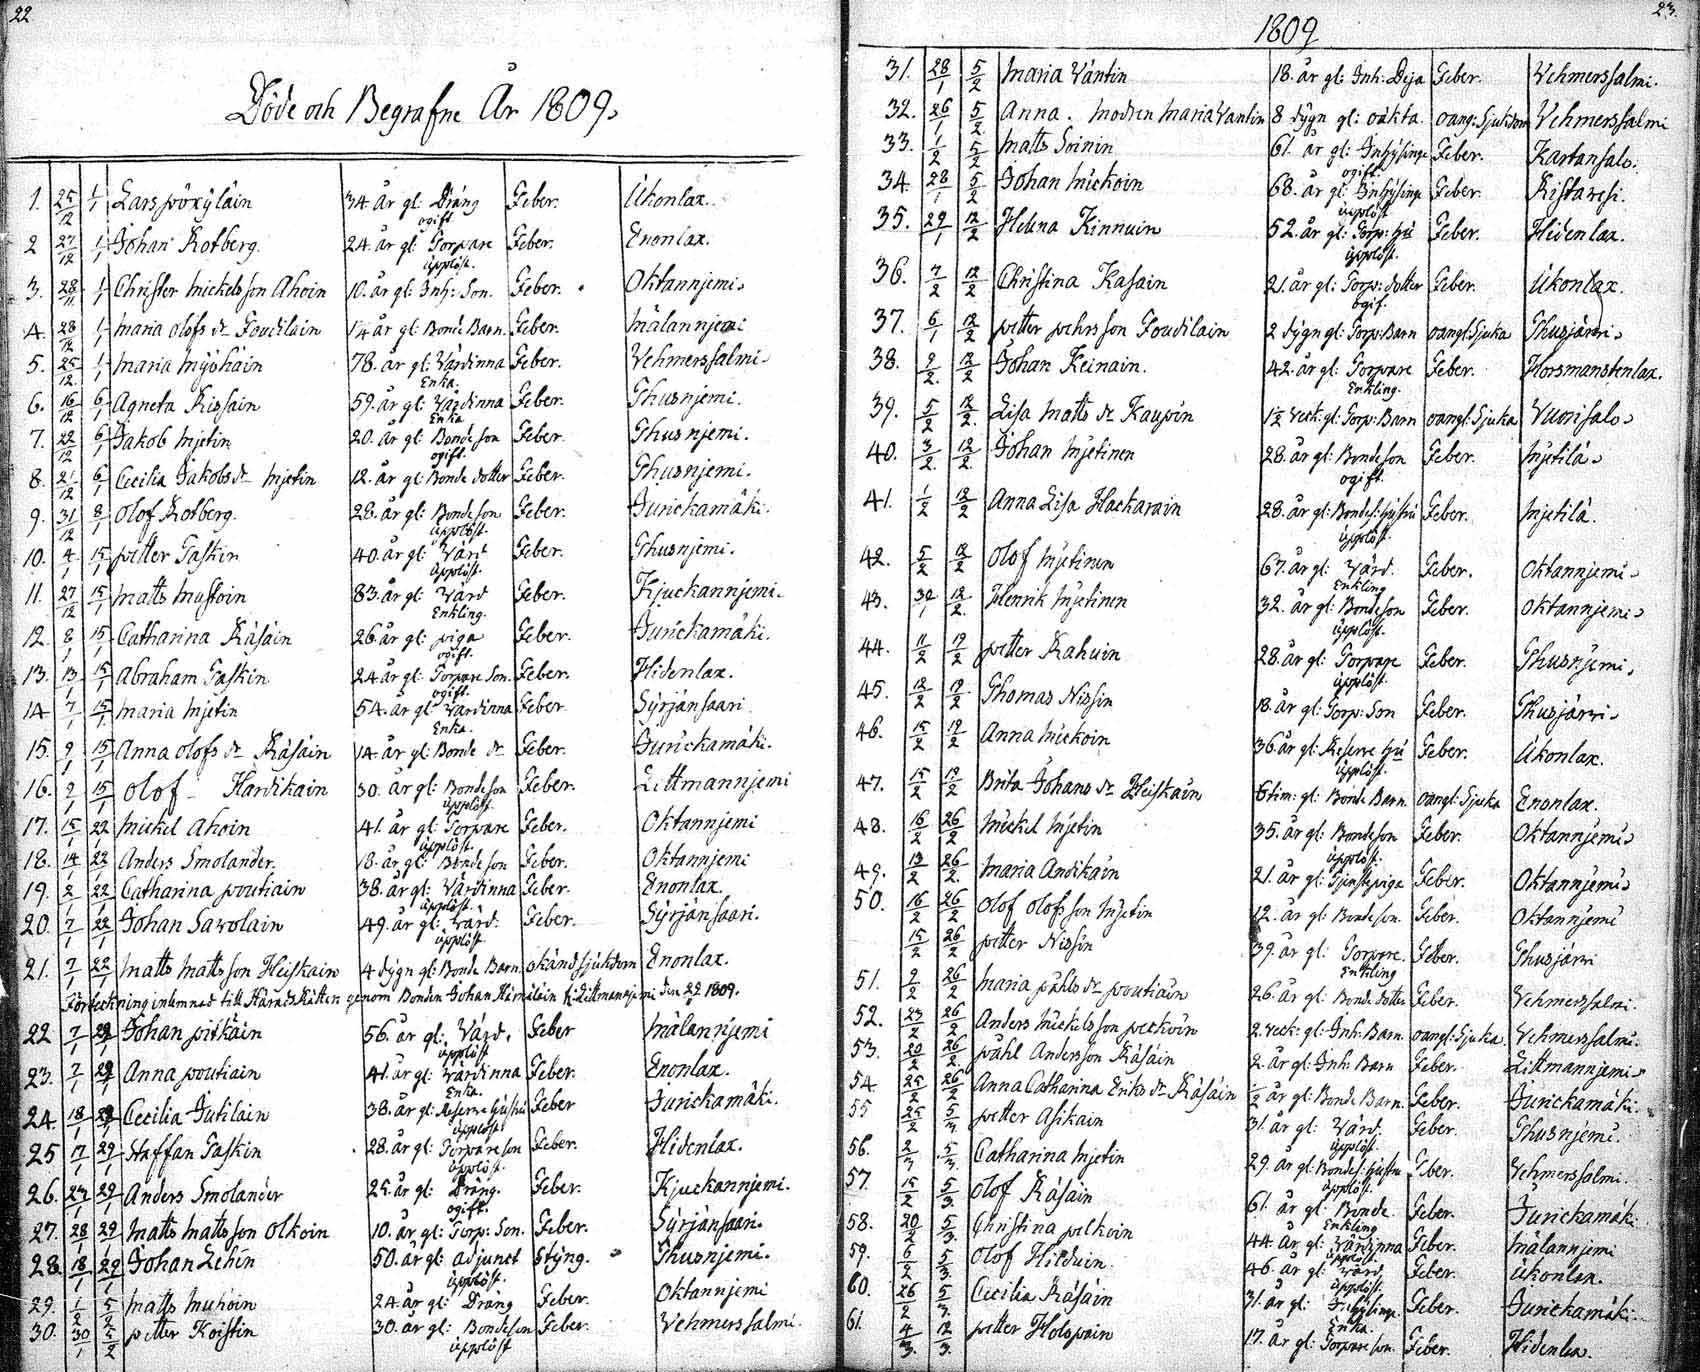 22
Döde och Begrafne År 1809.
1. 25/12 1/1 Lars pöxyläin 34. år gl: Dräng Feber. Ukonlax.
ogift
2 27/12 1/1 Johan Rotberg. 24. år gl: Torpare Feber. Enonlax.
upplöst.
3. 28/11 1/1 Christer Mickelsson Ahoin 10. år gl: Inh: Son. Feber. Oktannjemi.
4. 28/12 1/1 Maria olofs dr Toudilain år gl: Bonde Barn. Feber. Mälannjemi
5. 25/12 1/1 Maria Myöhäin 78. år gl: Värdinna Feber. Vehmerssalmi.
Enka.
6. 16/12 6/1 Agneta Rissain 59. år gl: Värdinna Feber. Thusnjemi.
Enka.
7. 22/12 6/1 Jakob Mjetin 20. år gl: Bonde son Feber. Thusnjemi.
ogift.
8. 21/12 6/1 Cecilia Jakobs dr Mjetin 12. år gl: Bonde dotter Feber. Thusnjemi.
9. 31/12 8/1 olof Rotberg. 28. år gl: Bonde son Feber. Jurickamäki.
upplöst.
10. 4/1 15/1 petter Taskin 40. år gl: Värd Feber. Thusnjemi.
upplöst.
11. 27/12 15/1 Matts Mustoin 83. år gl: Värd Feber. Kjuckannjemi.
Enkling.
12. 8/1 15/1 Catharina Räsäin 26. år gl: piga Feber. Jurickamäki.
ogift.
13. 13/1 15/1 Abraham Taskin 24 år gl: Torpare Son. Feber. Hidenlax.
ogift.
14 7/1 15/1 Maria Mjetin 54. år gl Värdinna Feber. Syrjänsaari
Enka.
15. 9/1 15/1 Anna Olofs dr Räsäin 14. år gl: Bonde dr Feber. Jurickamäki.
16. 2/1 15/1 olof Hardikain 30. år gl: Bonde son Feber. Littmannjemi
upplöst.
17. 15/1 22/1 Mickel Ahoin 41. år gl: Torpare Feber. Oktannjemi
upplöst.
18. 14/1 22/1 Anders Smolander. 18. år gl: Bonde son Feber. Oktannjemi
19. 2/1 22/1 Catharina poutiain 38. år gl: Värdinna Feber. Enonlax.
upplöst.
20. 7/1 22/1 Johan Savolain 49. år gl: Värd. Feber. Syrjänsaari.
upplöst
21. 7/1 22/1 Matts Mattsson Heiskain 4 dygn gl: Bonde Barn. okänd sjukdom Enonlax.
Förteckning inlemnad till HäradsRätten genom Bonden Johan Hämäläin f: Littmannjemi den 1809.
22 7/1 29/1 Johan pitkäin 56. år gl: Värd. Feber Mälannjemi
upplöst
23. 7/1 29/1 Anna poutiain 41. år gl: Värdinna Feber. Enonlax.
Enka.
24. 18/1 29/1 Cecilia Jutilain 38. år gl: Reserve Hustru Feber Jurickamäki.
upplöst
25 17/1 29/1 Staffan Taskin 28. år gl: Torpare son Feber. Hidenlax.
upplöst.
26. 23/1 29/1 Anders Smolander 25. år gl: Dräng. Feber. Kjuckannjemi.
ogift.
27. 28/1 29/1 Matts Mattsson Olkoin 10. år gl: Torp: Son. Feber. Syrjänsaari.
28. 18/1 29/1 Johan Lehin 50. år gl: Adjunct Styng. Thusnjemi.
upplöst.
29. 1/2 5/2 Matts Muhoin 24. år gl: Dräng Feber. Oktannjemi
30. 30/1 5/2 petter Koistin 30. år gl: Bonde son Feber. Vehmerssalmi.
upplöst
23.
1809
31. 28/1 5/2 Maria Väntin 18. år gl: Inh: Deja Feber. Vehmerssalmi.
32. 26/1 5/2 Anna. modren Maria Vantin 8 dygn gl: oäkta. oang: Sjukdom Vehmerssalmi
33. 1/2 5/2 Matts Soinin 61. år gl: Inhysinge Feber. Kartansalo.
ogift.
34. 28/1 5/2 Johan Mickoin 68. år gl: Inhysinge Feber. Ristavesi.
upplöst
35. 29/1 12/2 Helena Kinnuin 52. år gl: Torp: Hu Feber. Hidenlax.
upplöst.
36. 7/2 12/2 Christina Kasain 21. år gl: Torp: dotter Feber. Ukonlax.
ogif.
37. 6/1 12/2 petter pehrsson Toudilain 2 dygn gl: Torp: Barn oangl: Sjuka Thusjärvi.
38. 9/2 12/2 Johan Keinain. 42. år gl: Torpare Feber. Horsmanstenlax.
Enkling.
39. 5/2 12/2 Lisa Matts dr Kaupin 1½ veck: gl: Torp: Barn oangl: Sjuka Vuorisalo.
40. 3/2 12/2 Johan Mjetinen 28. år gl: Bonde son Feber. Mjetilä.
ogift.
41. 1/2 12/2 Anna Lisa Hackarain 28. år gl: Bondes: Hustru Feber. Mjetilä.
upplöst.
42. 5/2 12/2 Olof Mjetinen 67. år gl: Värd. Feber. Oktannjemi.
Enkling
43. 30/1 12/2 Henrik Mjetinen 32. år gl: Bonde son Feber. oktannjemi.
upplöst.
44. 11/2 19/2 petter Kahuin 28. år gl: Torpare Feber. Thusnjemi.
upplöst.
45. 12/2 19/2 Thomas Nissin 18. år gl: Torp: Son Feber. Thusjärvi.
46. 15/2 19/2 Anna Mickoin 36. år gl: Reserve Hu Feber. Ukonlax.
upplöst.
47. 15/2 19/2 Brita Johans dr Heiskain 6 tim: gl: Bonde Barn. oangl: Sjuka Enonlax.
48. 16/2 26/2 Mickel Mjetin 35. år gl: Bonde son Feber. Oktannjemi.
upplöst.
49. 13/2 26/2 Maria Andikain 21. år gl: Tjenstepiga Feber. Oktannjemi.
50. 16/2 26/2 Olof olofsson Mjetin 12. år gl: Bonde son. Feber. Oktannjemi
15/2 26/2 petter Nissin 39. år gl: Torpare. Feber. Thusjärvi
Enkling
51. 9/2 26/2 Maria påhls dr poutiain 26. år gl: Bonde dotter Feber. Vehmerssalmi.
52. 23/2 26/2 Anders Mickelsson peckoin 2. veck: gl: Inh: Barn. oangl: Sjuka. Vehmerssalmi.
53. 20/2 26/2 påhl Andersson Räsäin 2. år gl: Inh: Barn Feber. Littmannjemi.
54 25/2 26/2 Anna Catharina Eriks dr Räsäin ½ år gl: Bonde Barn. Feber. Jurickamäki.
55 25/2 5/3 petter Asikain 31. år gl: Värd. Feber. Thusnjemi.
upplöst
56. 2/3 5/3 Catharina Mjetin 29. år gl: Bondes: Hustru Feber. Vehmerssalmi.
upplöst.
57. 15/2 5/3 Olof Räsäin 61. år gl: Bonde Feber. Jurickamäki.
Enkling
58. 20/2 5/3 Christina pelkoin 44. år gl: Värdinna Feber. Mälannjemi
upplöst.
59. 6/2 5/3 Olof Hilduin. 46. år gl: Värd. Feber. Ukonlax.
upplöst
60. 26/2 5/3 Cecilia Räsäin 31. år gl: Inhysinge. Feber. Jurickamäki.
Enka.
61. 4/3 12/3 petter Holopain 17. år gl: Torpare son. Feber. Hidenlax.